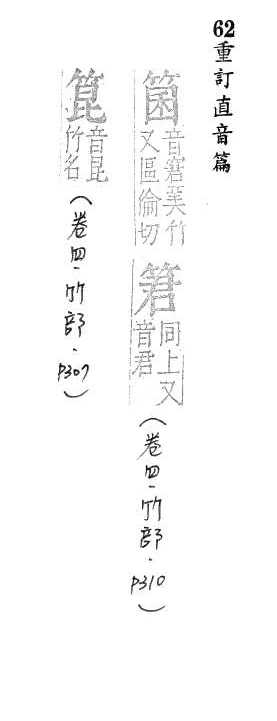 62重訂直音篇
箘音窘美竹又區倫切
䇹同上又音君
(卷四·竹部·p310)
箟音昆竹名
(卷四·竹部·p307)